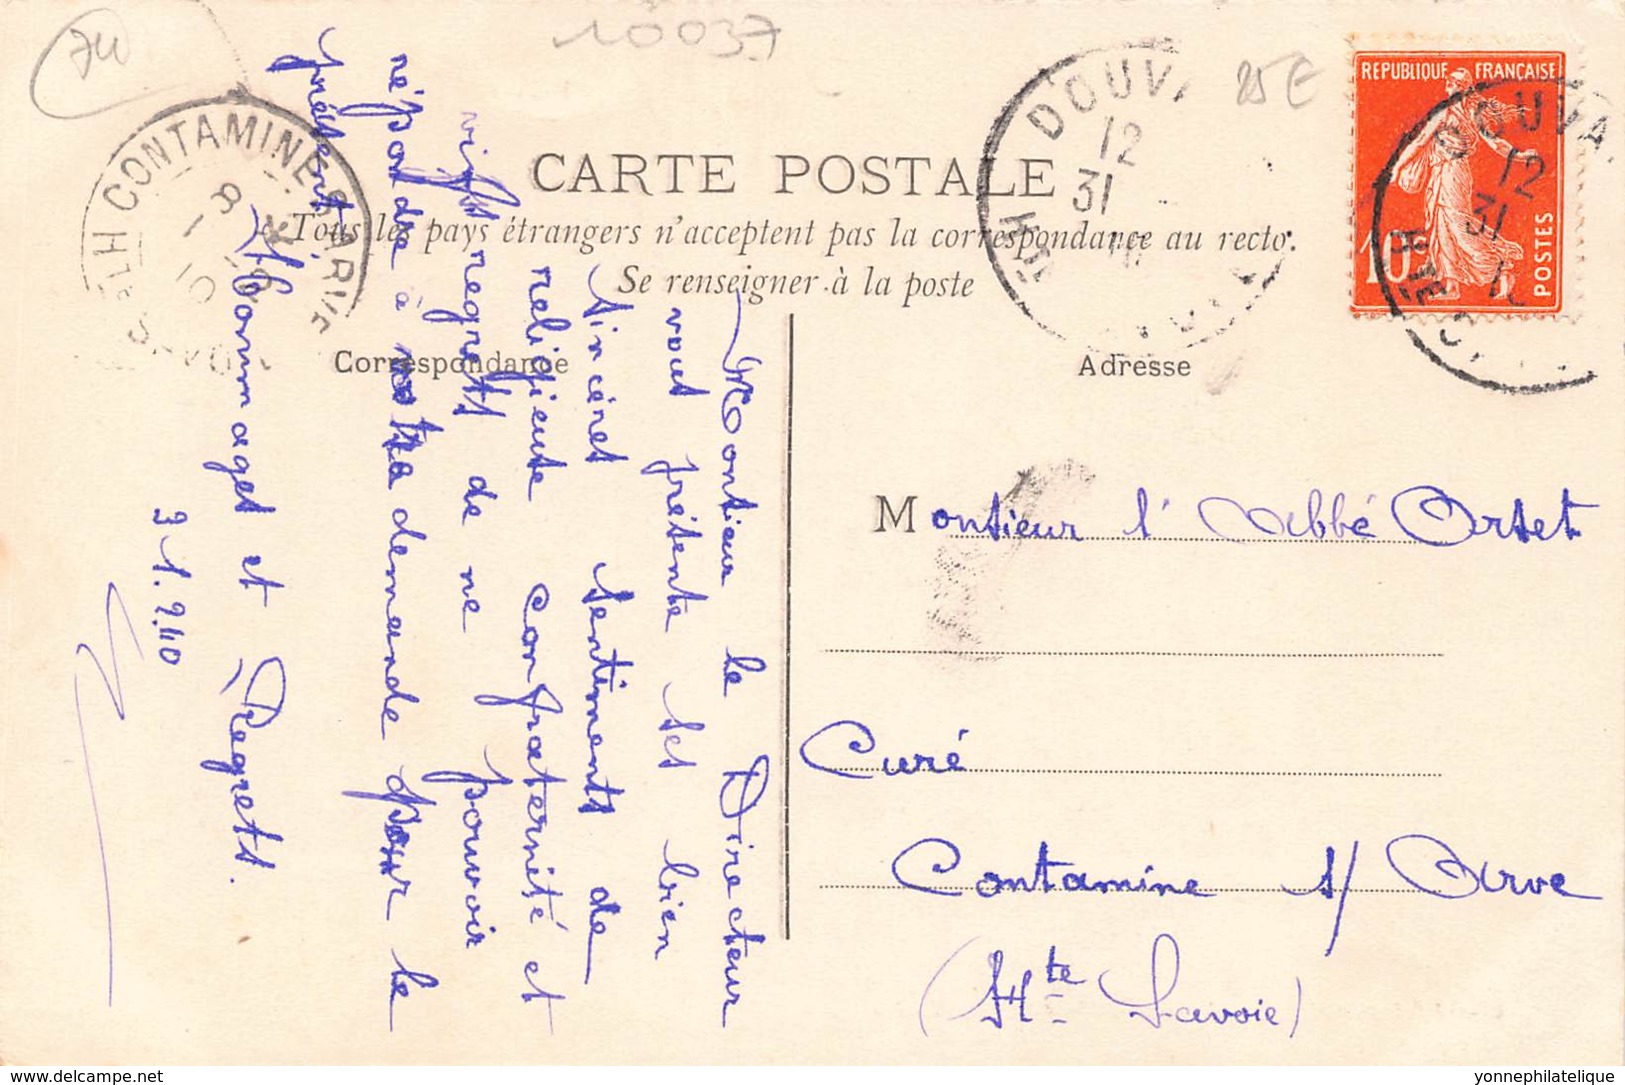 74
10037
25 E
CARTE POSTALE
Tous les pays étrangers n'acceptent pas la correspondance au recto.
Se renseigner à la poste
Correspondance
Adresse
REPUBLIQUE FRANÇAISE
10c
POSTES
DOUVA
12
31
DOUVA
12
31
CONTAMINE-S-ARVE
8
1
10
Monsieur le Directeur
vous présente ses bien
sincères sentiments de
religieuse confraternité et
vifs regrets de ne pouvoir
répondre à votre demande pour le
présent.
Hommages et Regrets.
Monsieur l'Abbé Ortet
Curé
Contamine s/ Arve
(Hte Savoie)
yonnephilatelique
www.yonnephilatelique.com